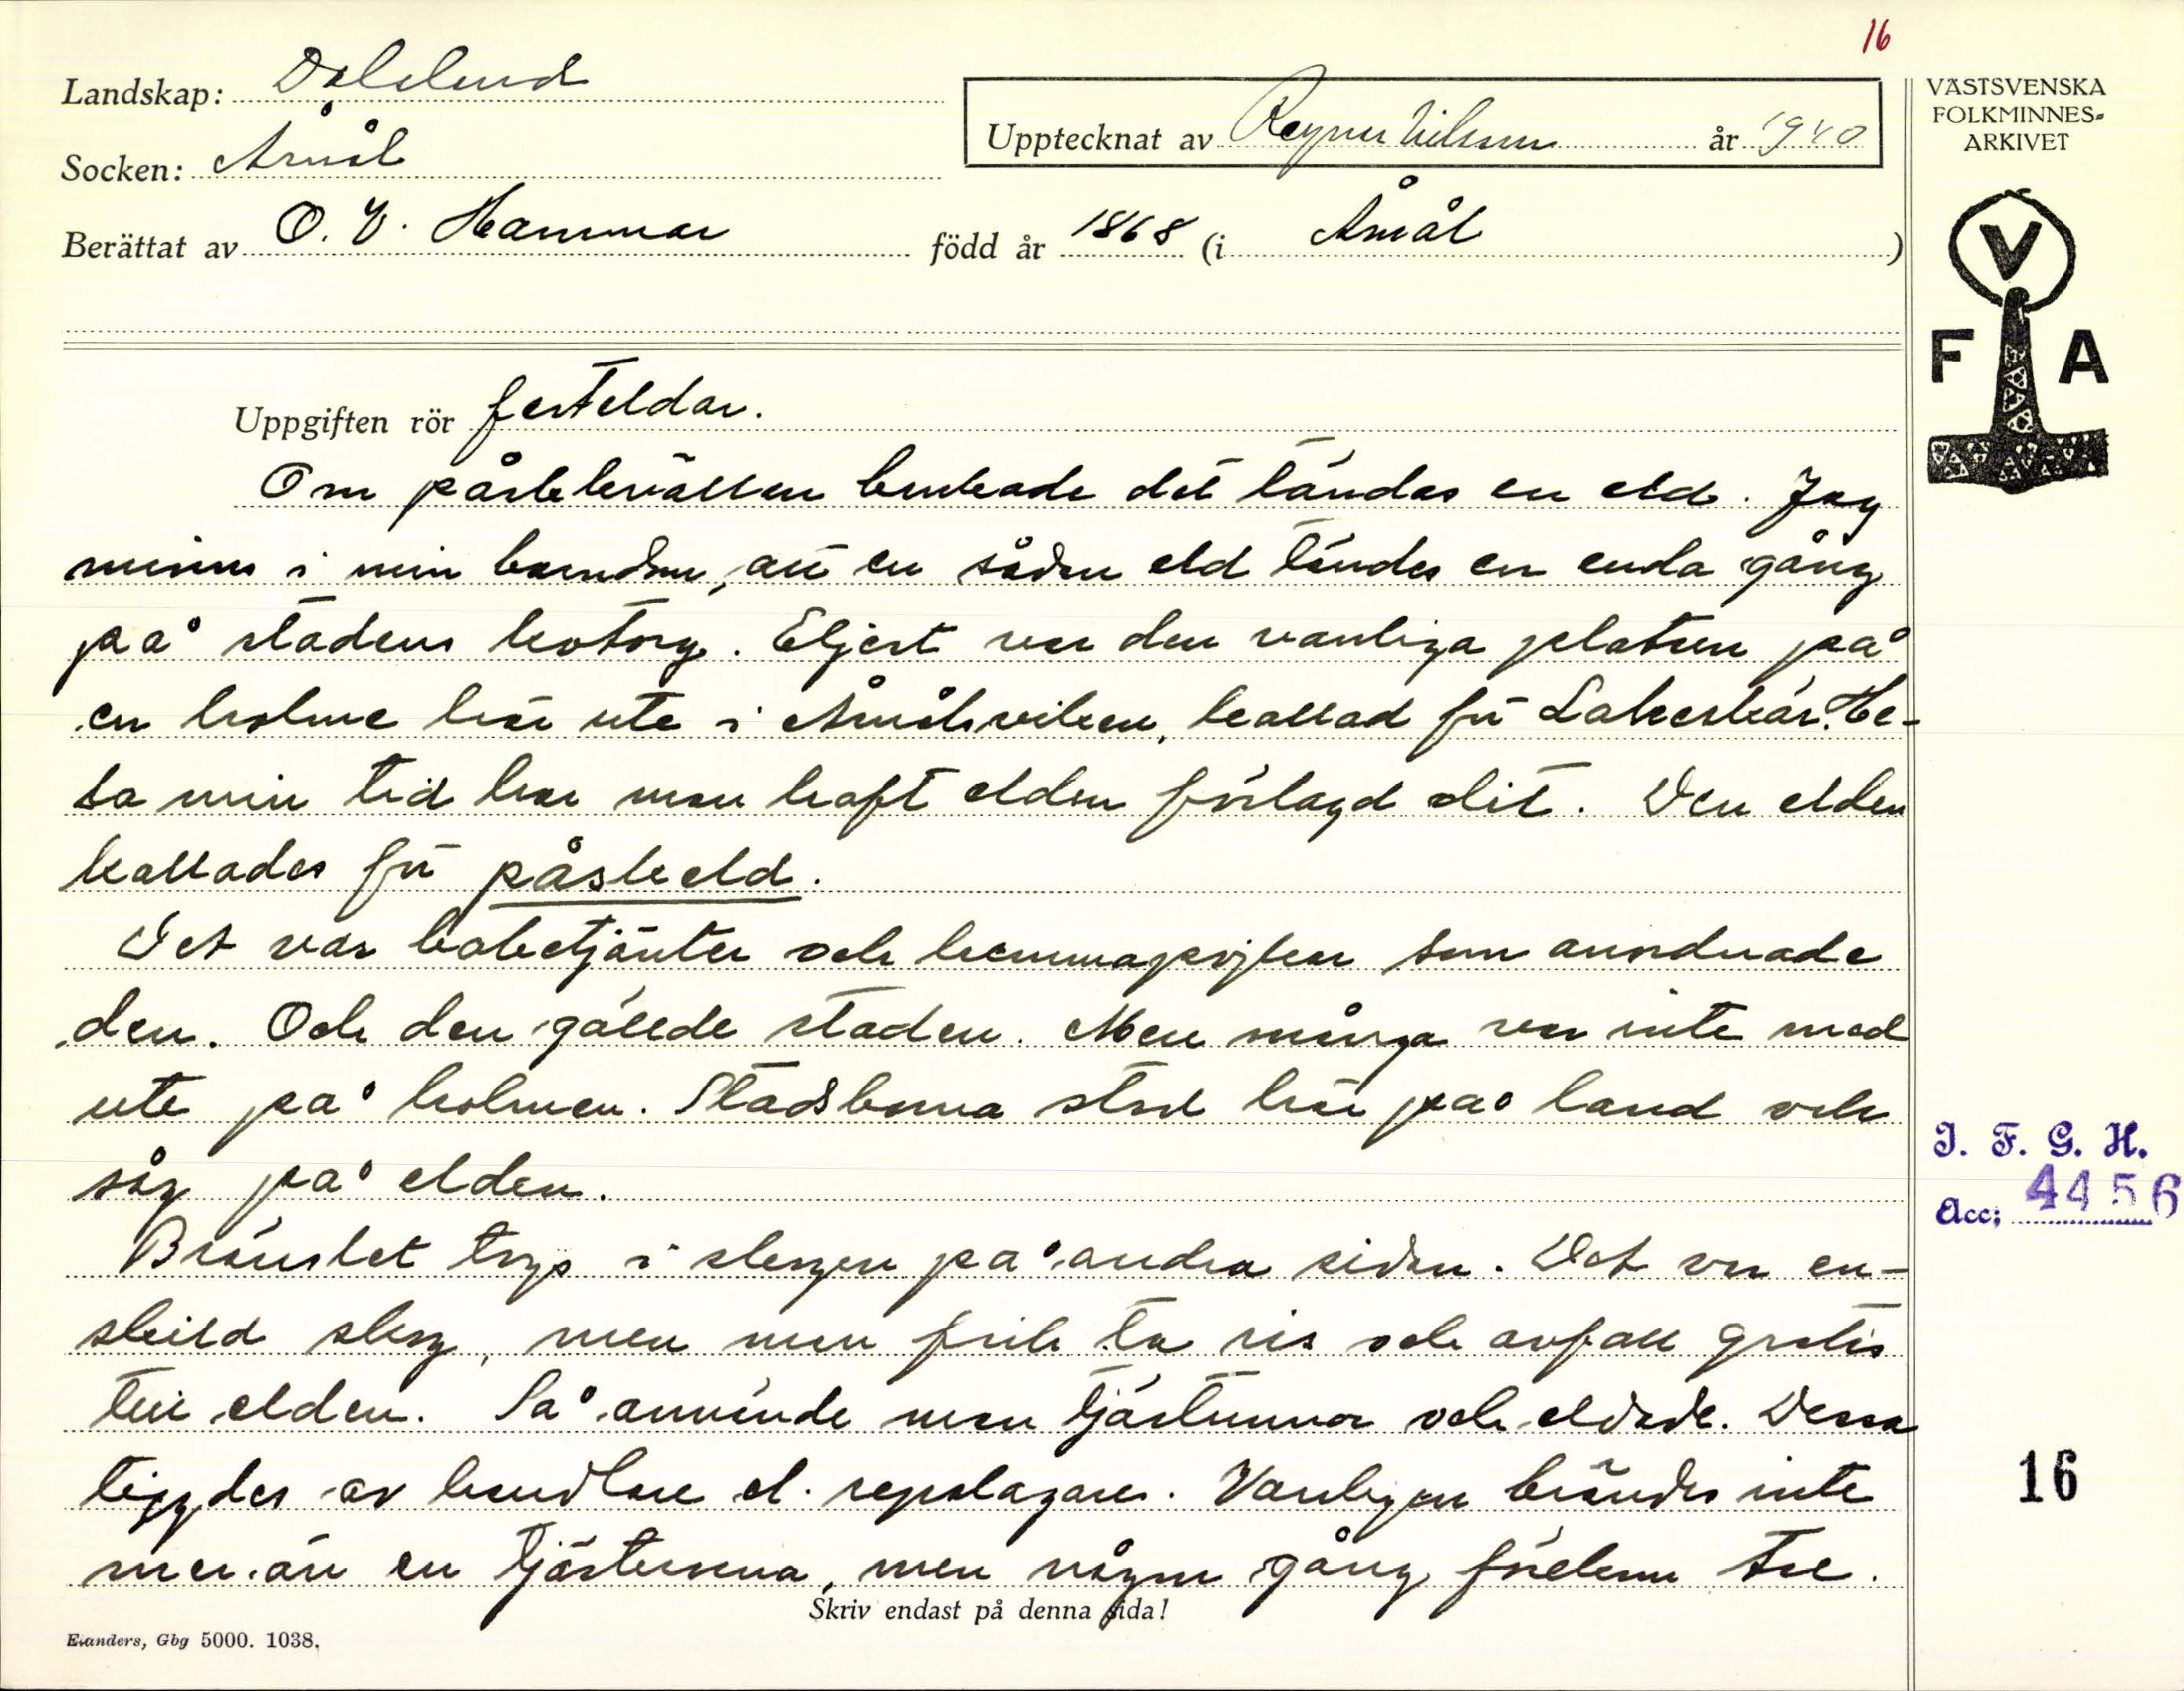 16
Landskap: Dalsland
Socken: Åmål
Upptecknat av Ragnar Nilsson år 1940
Berättat av O. V. Hammar född år 1868 (i Åmål)
VÄSTSVENSKA
FOLKMINNES=
ARKIVET
V
F A
Uppgiften rör festeldar.
Om påskkvällen brukade det tändas en eld. Jag
minns i min barndom, att en sådan eld tändes en enda gång
på stadens kotorg. Eljest var den vanliga platsen på
en holme här ute i Åmålsviken, kallad för Lakeskär. He-
la min tid har man haft elden förlagd dit. Den elden
kallades för påskeld.
Det var bohetjänter och hemmapojkar som anordnade
den. Och den gällde staden. Men många var inte med
ute på holmen. Stadsborna stod här på land och
såg på elden.
Bränslet togs i skogen på andra sidan. Det var en-
skild skog, men man fick ta ris och avfall gratis
till elden. Så använde man tjärtunnor och eldade. Dessa
tiggdes av handlare el. repslagare. Vanligen brändes inte
mer än en tjärtunna, men någon gång förekom tre.
Skriv endast på denna sida!
I. F. G. H.
Acc; 4456
16
Elanders, Gbg 5000. 1038.